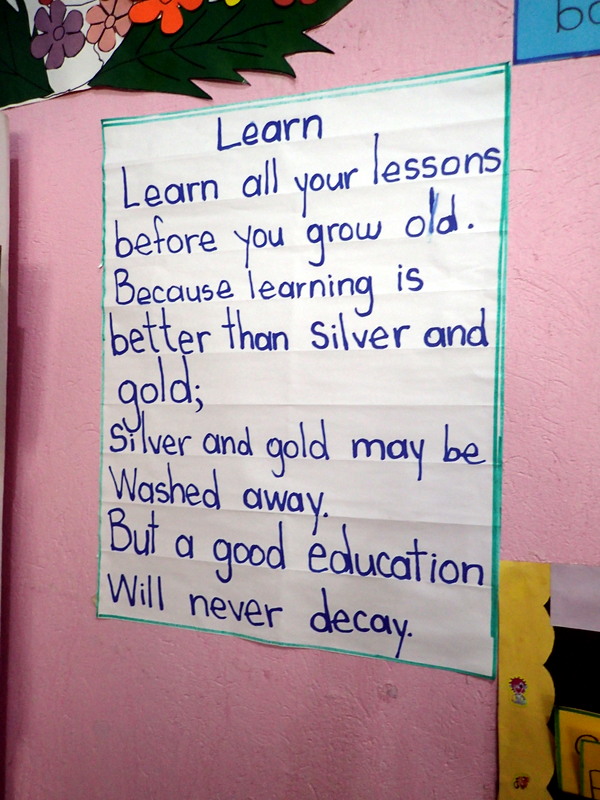 Learn
Learn all your lessons
before you grow old.
Because learning is
better than silver and
gold;
Silver and gold may be
Washed away.
But a good education
Will never decay.